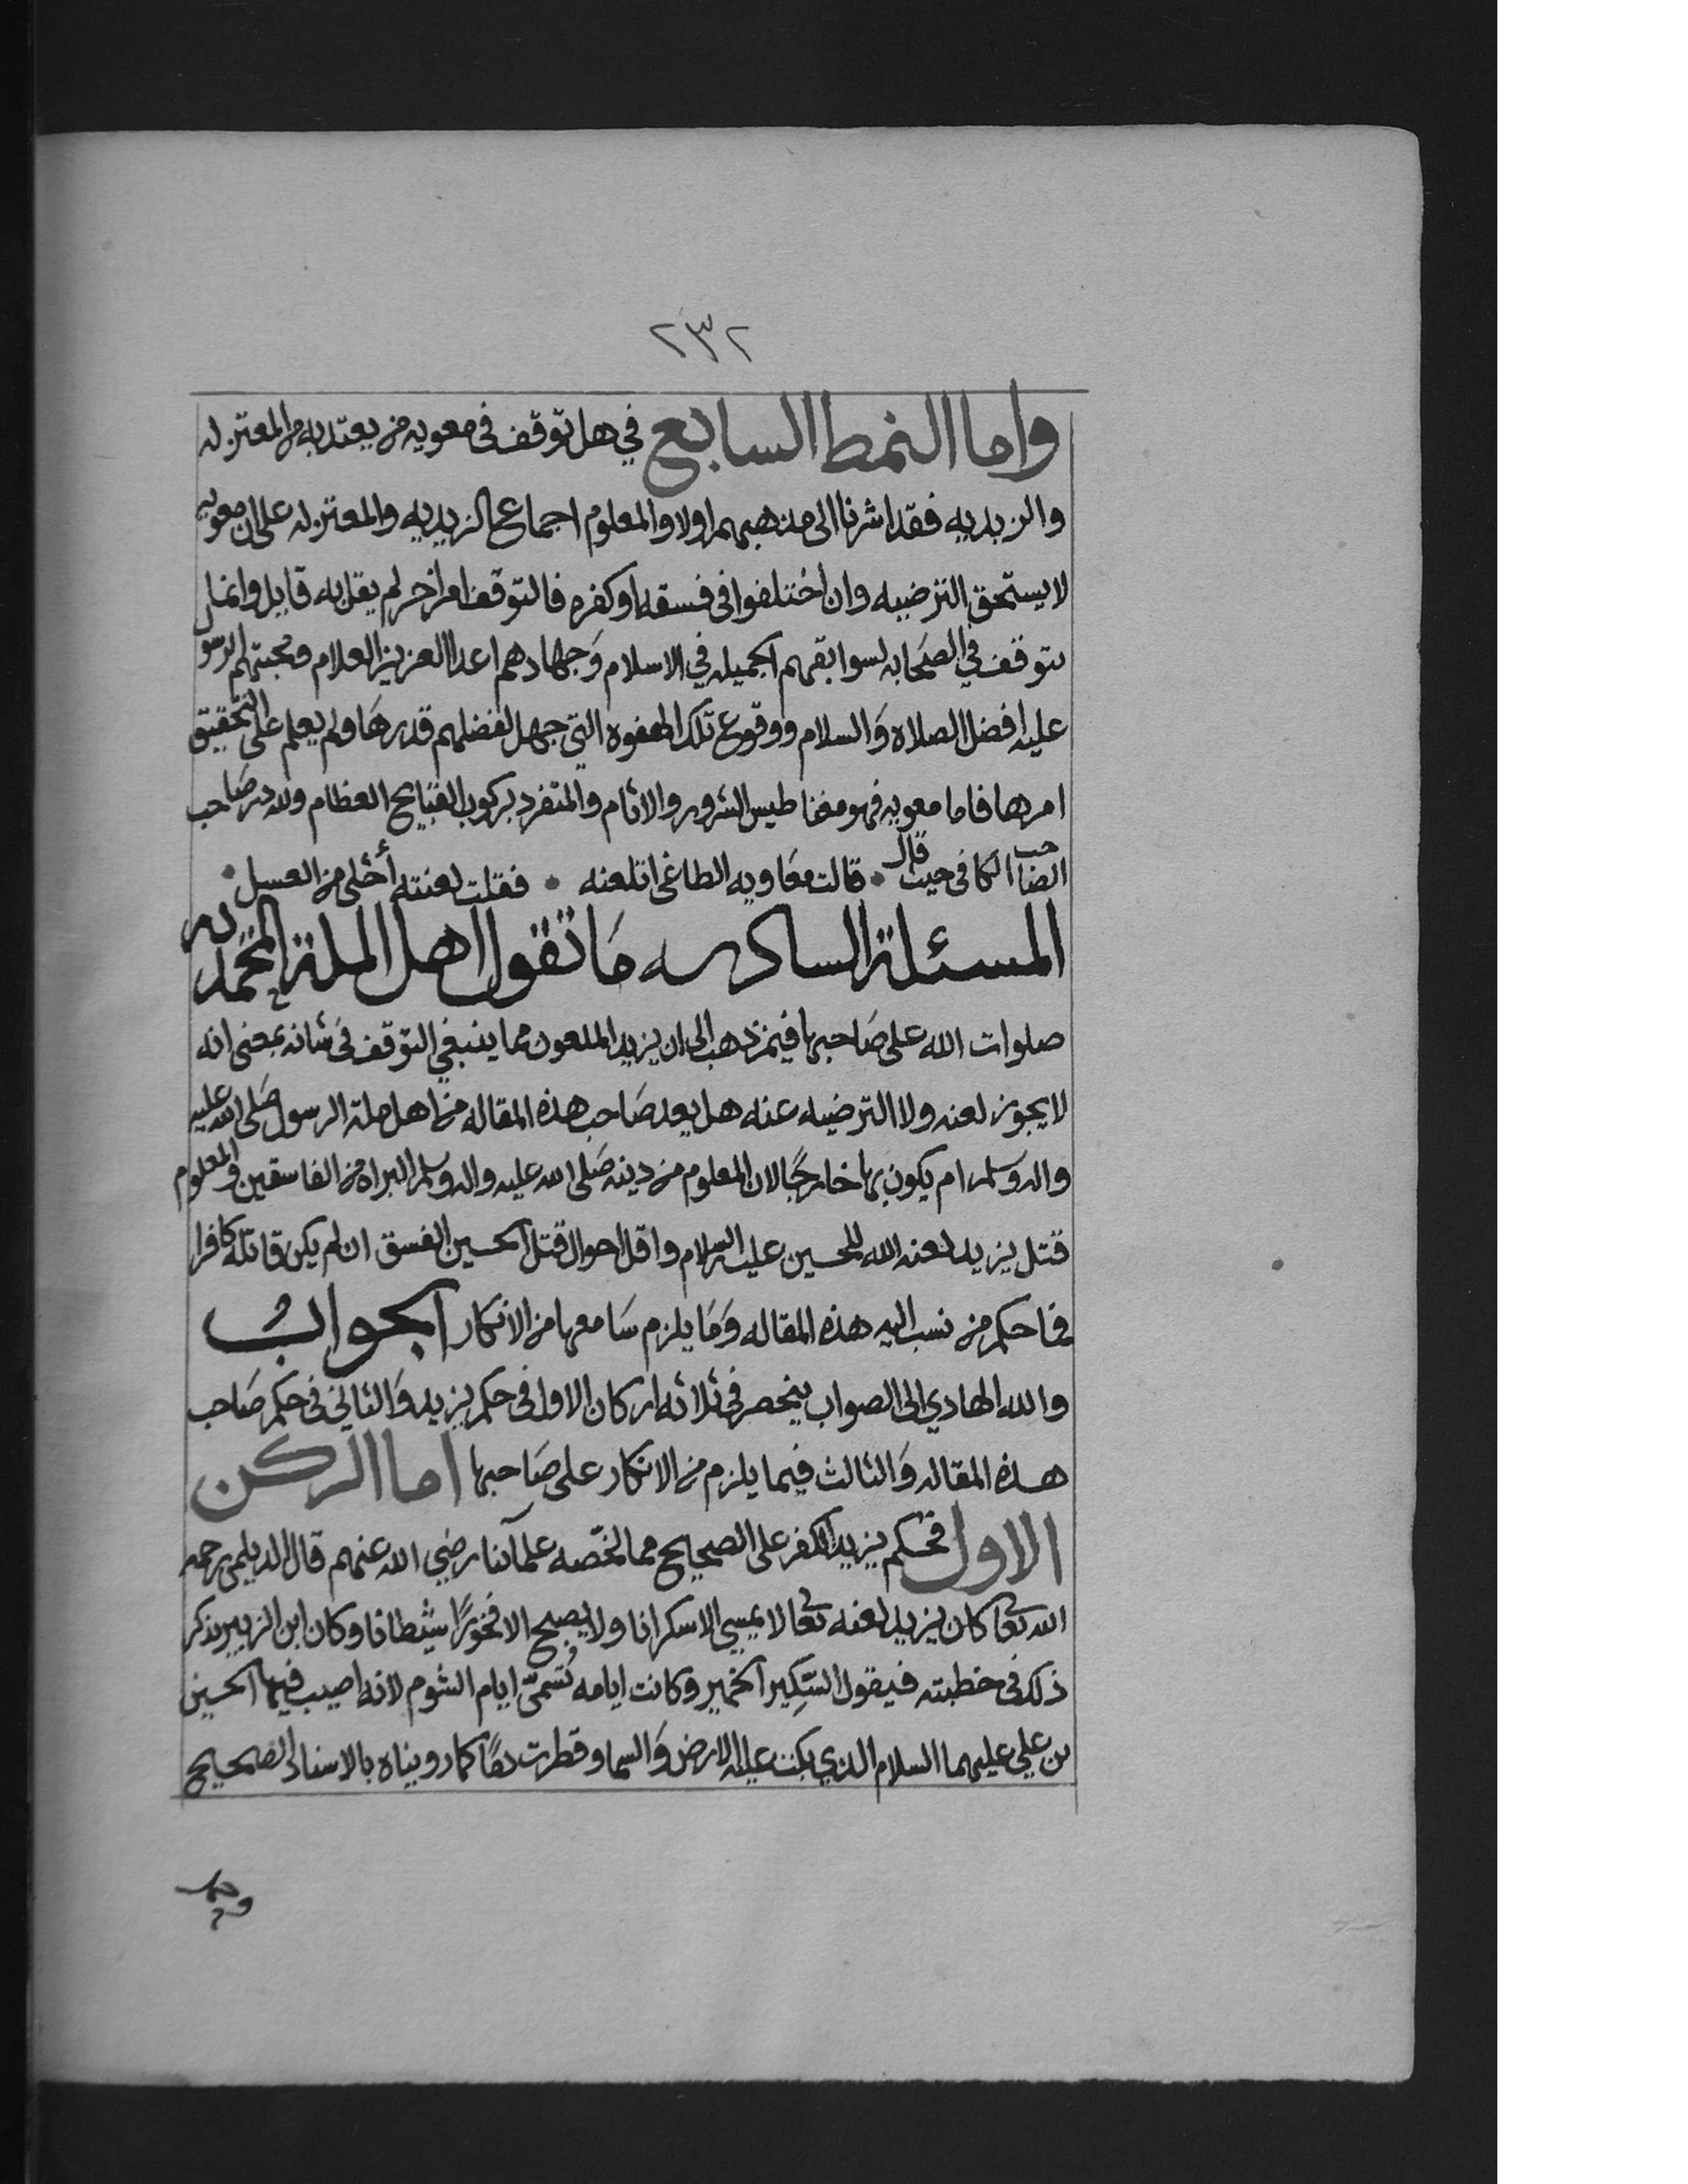 ٢٣٢
واما النمط السابع في هل توقف في معويه من يعتد به من المعتزله
والزيديه فقد اشرنا الى مذهبهم اولا والمعلوم اجماع الزيديه والمعتزله على ان معويه
لا يستحق الترضيه وان اختلفوا في فسقه او كفره فالتوقف امر اخر لم يقل به قايل وانما
يتوقف في الصحابه لسوابقهم الجميله في الاسلام وجهادهم اعدا العزيز العلام ومحبتهم للرسول
عليه افضل الصلاه والسلام ووقوع تلك الهفوه التي جهل لفضلهم قدرها ولم يعلم على التحقيق
امرها فاما معويه فهو مغناطيس الشرور والاثام والمتفرد بركوب القبايح العظام ولله در صاحب
الصاحب الكافي حيث قال • قالت معاويه الطاغي اتلعنه • فقلت لعنته أحلى من العسل •
المسئلة السادسه ما تقول اهل الملة المحمديه
صلوات الله على صاحبها فيمن ذهب الى ان يزيد الملعون مما ينبغي التوقف في شانه بمعنى انه
لا يجوز لعنه ولا الترضيه عنه هل يعد صاحب هذه المقاله من اهل ملة الرسول صلى الله عليه
واله وسلم ام يكون بها خارجا لان المعلوم من دينه صلى الله عليه واله وسلم البراه من الفاسقين والمعلوم
قتل يزيد لعنه الله للحسين عليه السلام واقل احوال قتل الحسين الفسق ان لم يكن قاتله كافرا
فما حكم من نسب اليه هذه المقاله وما يلزم سامعها من الانكار الجواب
والله الهادي الى الصواب ينحصر في ثلاثه اركان الاول في حكم يزيد والثاني في حكم صاحب
هذه المقاله والثالث فيما يلزم من الانكار على صاحبها اما الركن
الاول فحكم يزيد الكفر على الصحيح مما لخصه علمآئنا رضي الله عنهم قال الديلمي رحمه
الله تعا كان يزيد لعنه تعا لا يمسي الا سكرانا ولا يصبح الا فخورا شيطانا وكان ابن الزبير يذكر
ذلك في خطبته فيقول السكير الخمير وكانت ايامه تسمى ايام الشوم لانه اصيب فيها الحسين
بن علي عليهما السلام الذي بكت عليه الارض والسما وقطرت دما كما رويناه بالاسناد الصحيح